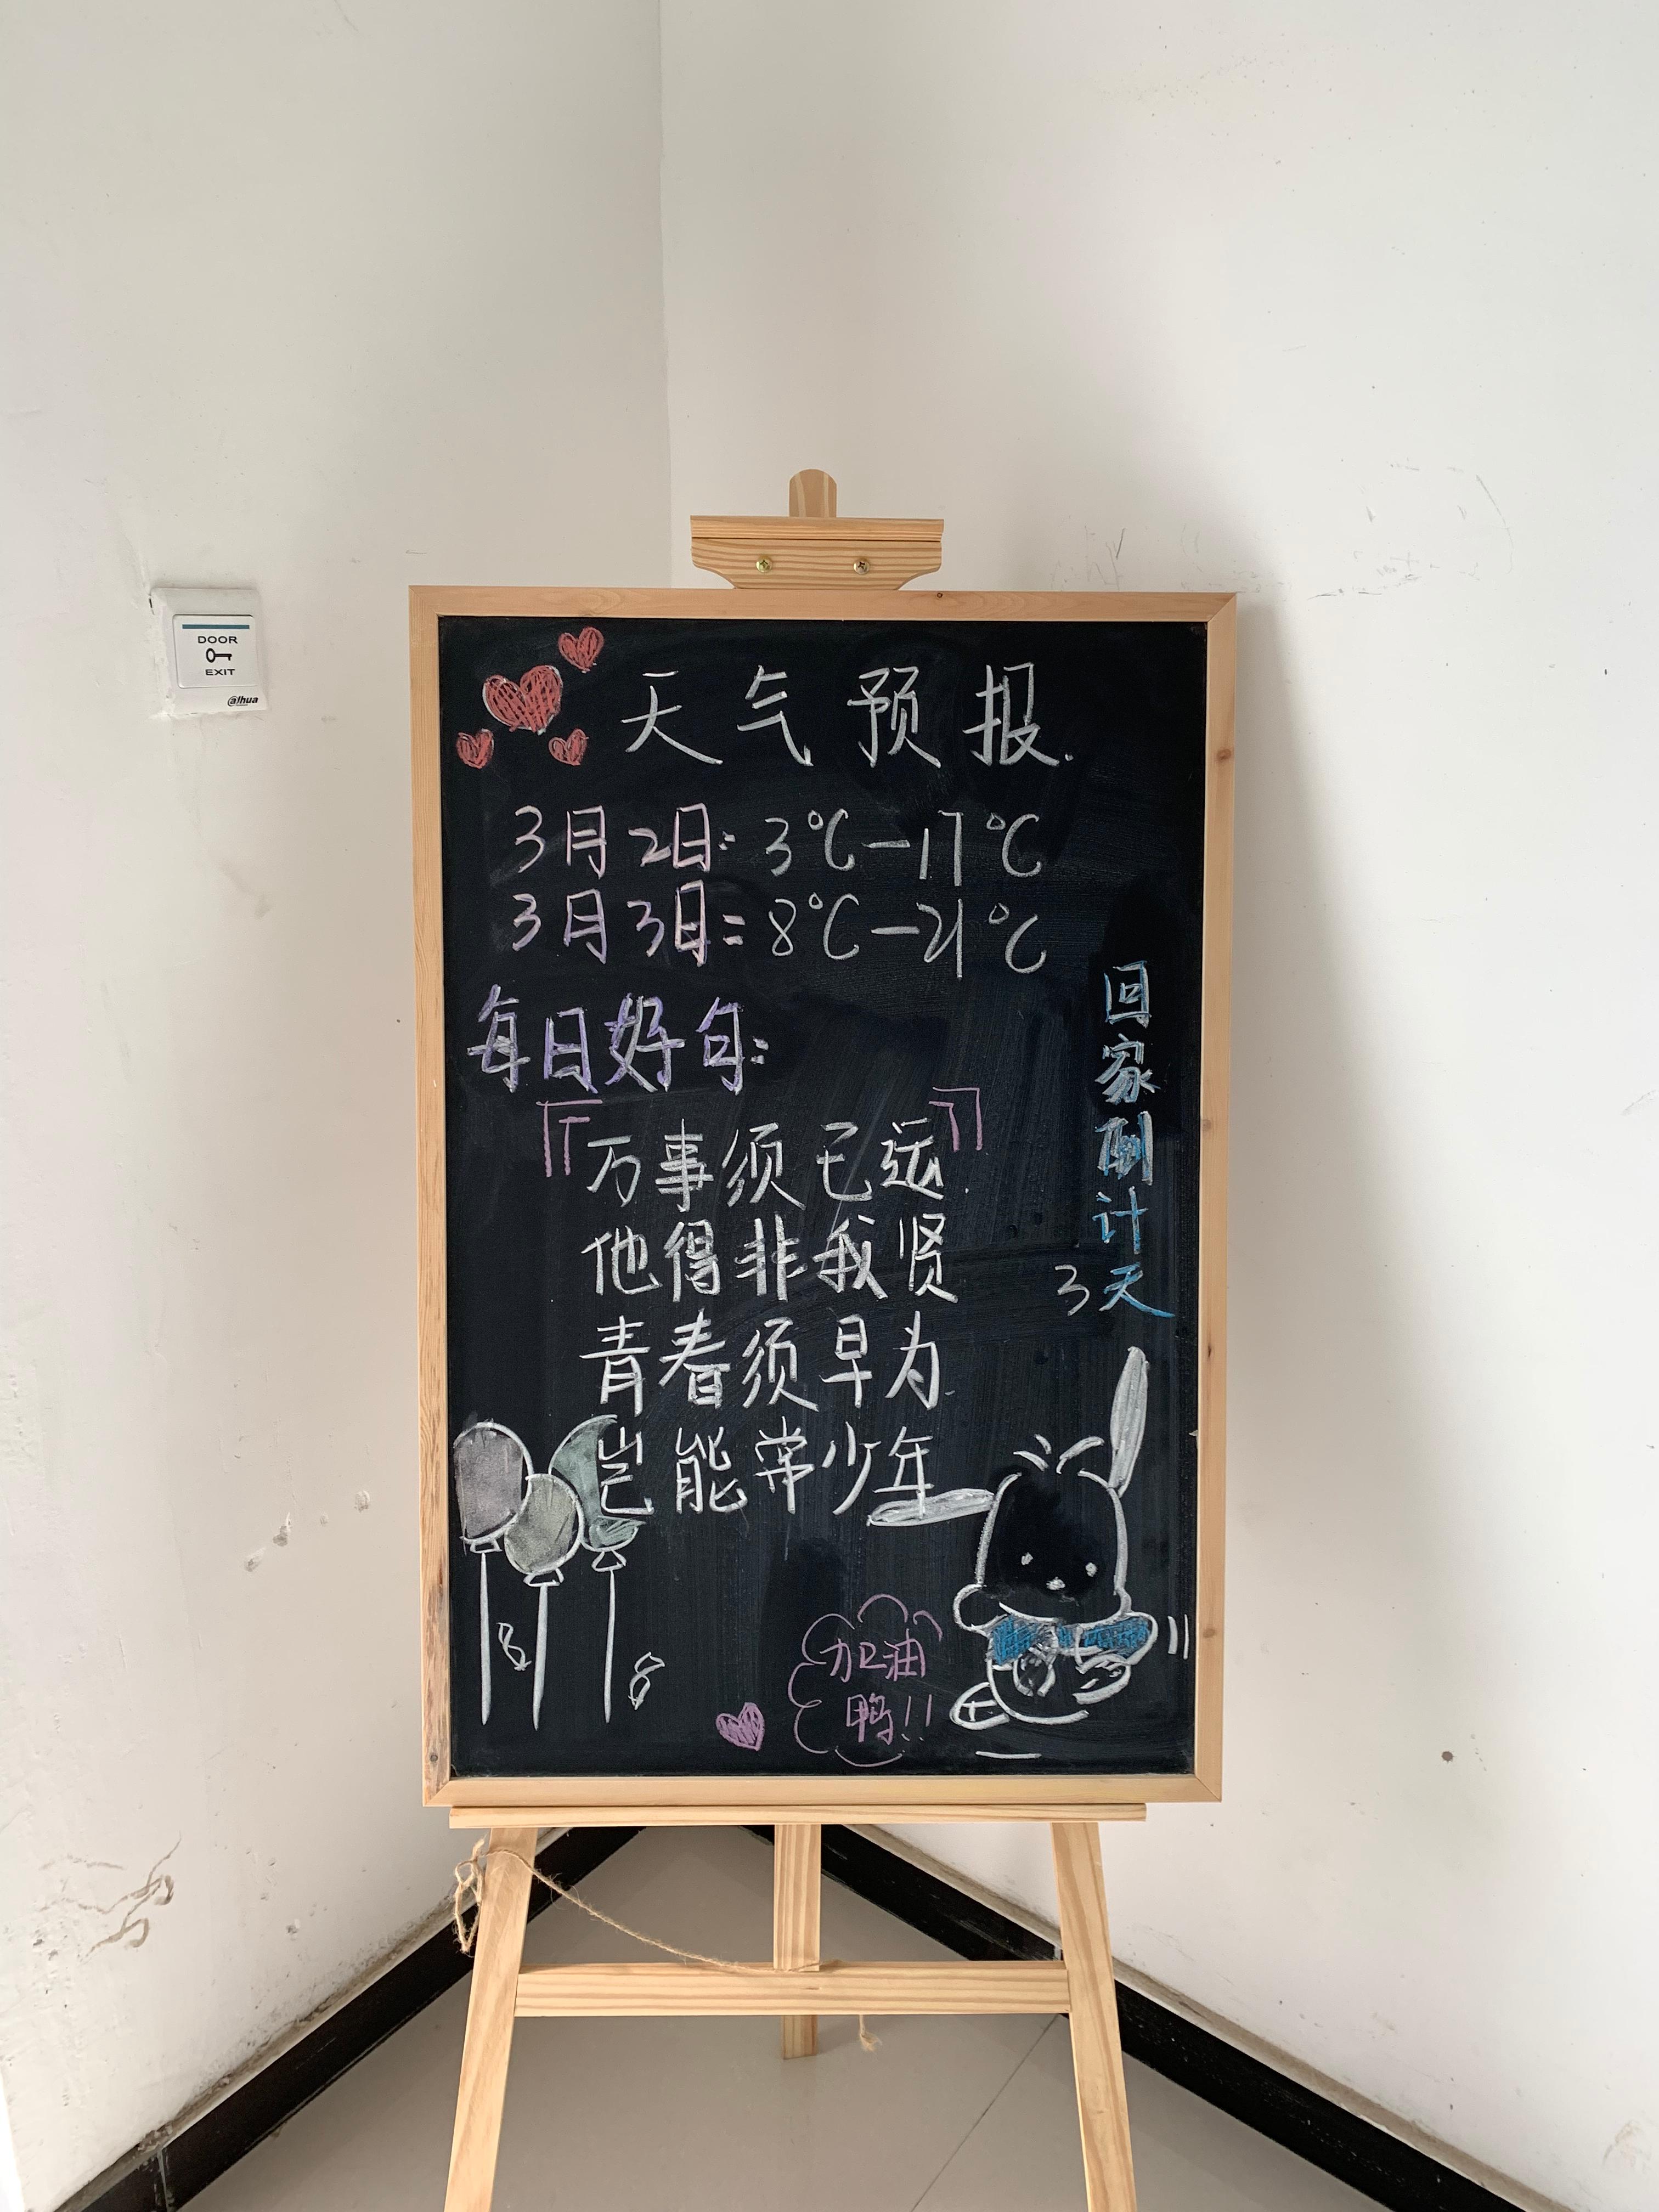 DOOR
EXIT
alhua
天气预报.
3月2日: 3℃—17℃
3月3日: 8℃—21℃
每日好句:
『万事须已远』
他得非我贤
青春须早为
岂能常少年
回家倒计
3天
加油
鸭!!